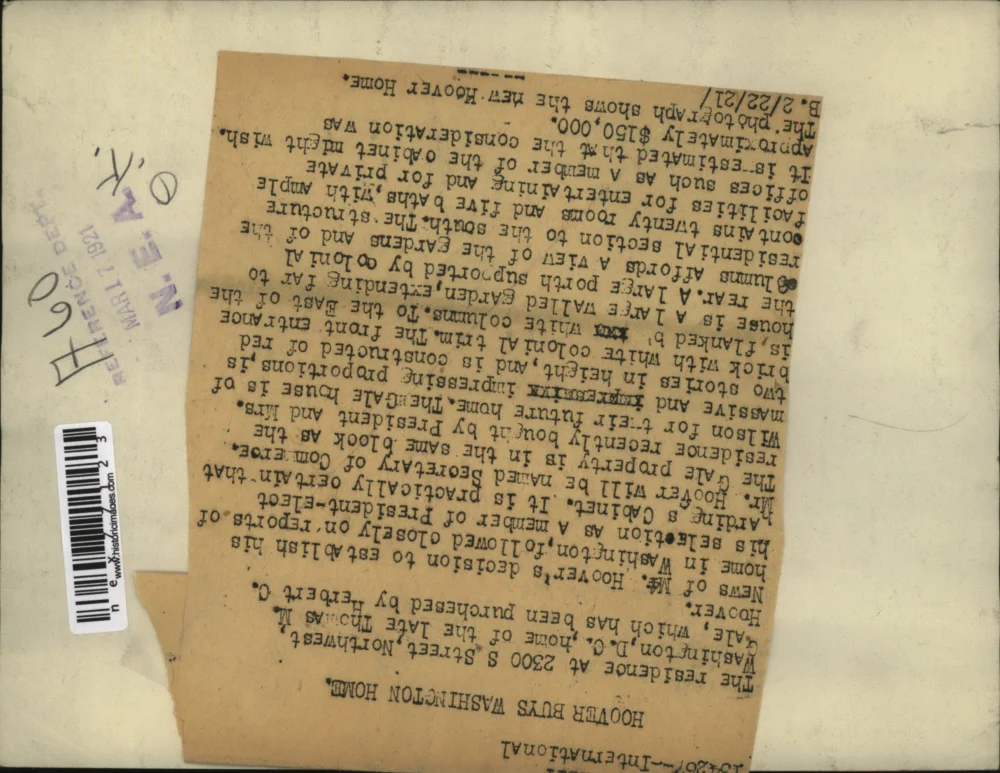 --International
HOOVER BUYS WASHINGTON HOME.
The residence at 2300 S Street, Northwest,
Washington, D.C., home of the late Thomas M.
Gale, which has been purchased by Herbert C.
Hoover.
News of Mr. Hoover's decision to establish his
home in Washington, followed closely on reports of
his selection as a member of President-elect
Harding s Cabinet. It is practically certain that
Mr. Hoover will be named Secretary of Commerce.
The Gale property is in the same block as the
residence recently bought by President and Mrs.
Wilson for their future home. The Gale house is of
massive and impressive impressing proportions, is
two stories in height, and is constructed of red
brick with white colonial trim. The front entrance
is, flanked b' white columns. To the East of the
house is a large walled garden, extending far to
the rear. A large porth supported by colonial
columns affords a view of the gardens and of the
residential section to the south. The structure
contains twenty rooms and five baths, with ample
facilities for entertaining and for private
offices such as a member of the cabinet might wish.
It is estimated that the consideration was
approximately $150,000.
The photograph shows the new Hoover Home.
B. 2/22/21/
------
O.K.
N. E. A.
MAR 17 1921
REFERENCE DEPT.
www.historicimages.com